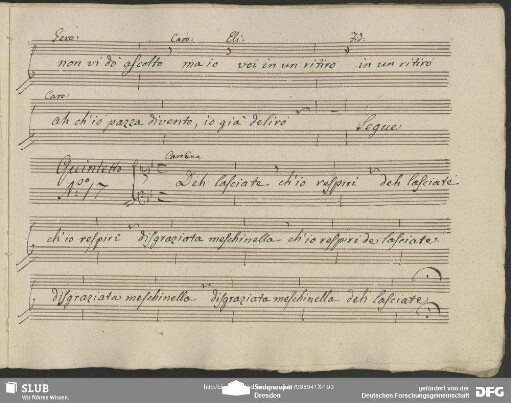 Gero: Caro: Eli: Fid:
non vi dò ascolto ma io voi in un ritiro in un ritiro
Caro:
ah ch'io pazza divento, io già deliro Segue
Carolina
Quintetto
No: 17 Deh lasciate ch'io respiri deh lasciate
ch'io respiri disgraziata meschinella ch'io respiri de lasciate
disgraziata meschinella disgraziata meschinella deh lasciate
SLUB
Wir führen Wissen.
Dresden
gefördert von der
Deutschen Forschungsgemeinschaft
DFG